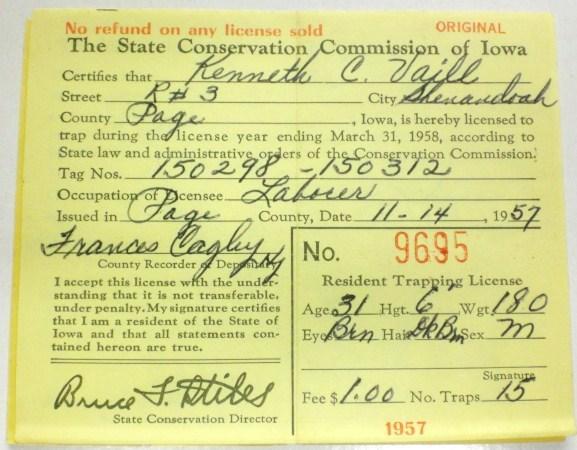 No refund on any license sold ORIGINAL
The State Conservation Commission of Iowa
Certifies that Kenneth C. Vaill
Street R#3 City Shenandoah
County Page, Iowa, is hereby licensed to
trap during the license year ending March 31, 1958, according to
State law and administrative orders of the Conservation Commission.
Tag Nos. 150298-150312
Occupation of Licensee Laborer
Issued in Page County, Date 11-14, 1957
Frances Cagley
County Recorder or Depositary
I accept this license with the under-
standing that it is not transferable,
under penalty. My signature certifies
that I am a resident of the State of
Iowa and that all statements con-
tained hereon are true.
Bruce F. Stiles
State Conservation Director
No. 9695
Resident Trapping License
Age 31 Hgt. 6' Wgt. 180
Eyes Brn Hair Dk Brn Sex M
Signature
Fee $1.00 No. Traps 15
1957